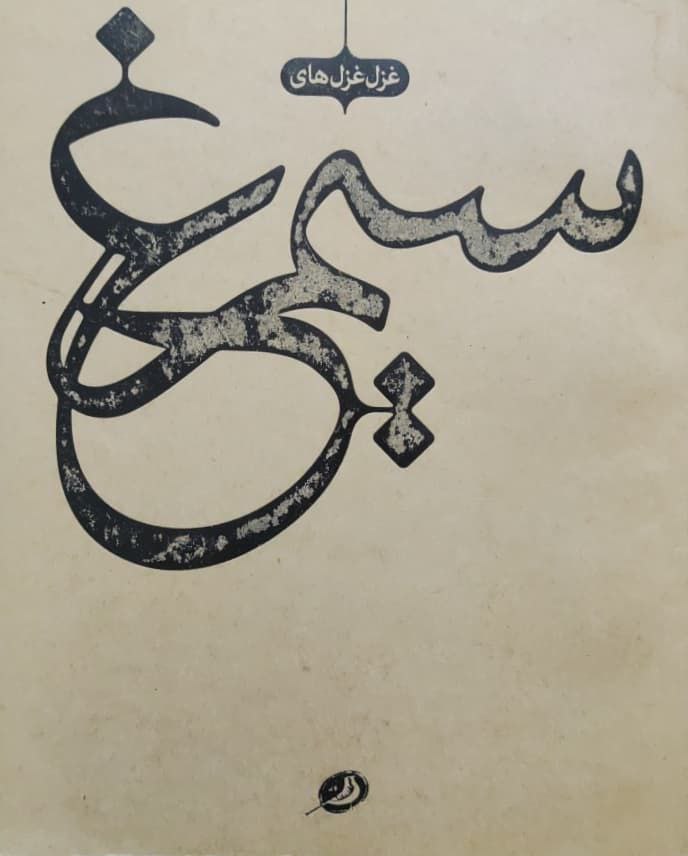 غزل‌غزل‌های
سیمرغ